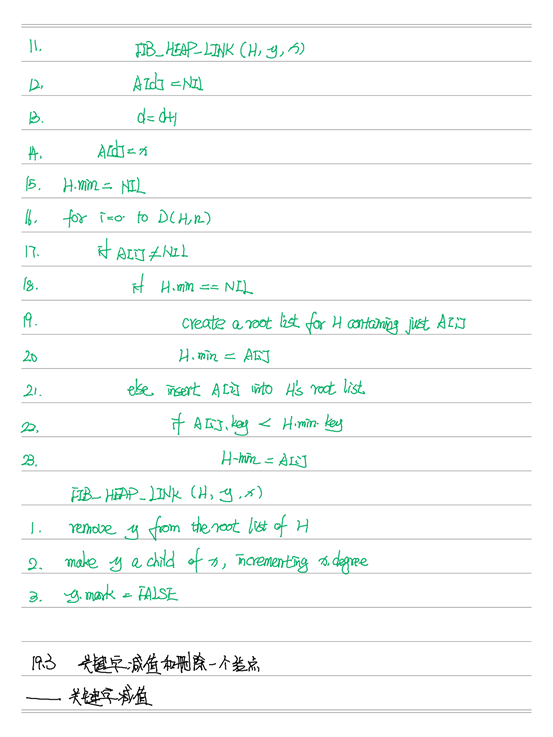 11. FIB_HEAP_LINK (H, y, x)
12. A[d] = NIL
13. d = d+1
14. A[d] = x
15. H.min = NIL
16. for i=0 to D(H.n)
17. if A[i] ≠ NIL
18. if H.min == NIL
19. create a root list for H containing just A[i]
20 H.min = A[i]
21. else insert A[i] into H's root list
22. if A[i].key < H.min.key
23. H.min = A[i]
FIB_HEAP_LINK (H, y, x)
1. remove y from the root list of H
2. make y a child of x, incrementing x.degree
3. y.mark = FALSE
19.3 关键字减值和删除一个结点
—— 关键字减值